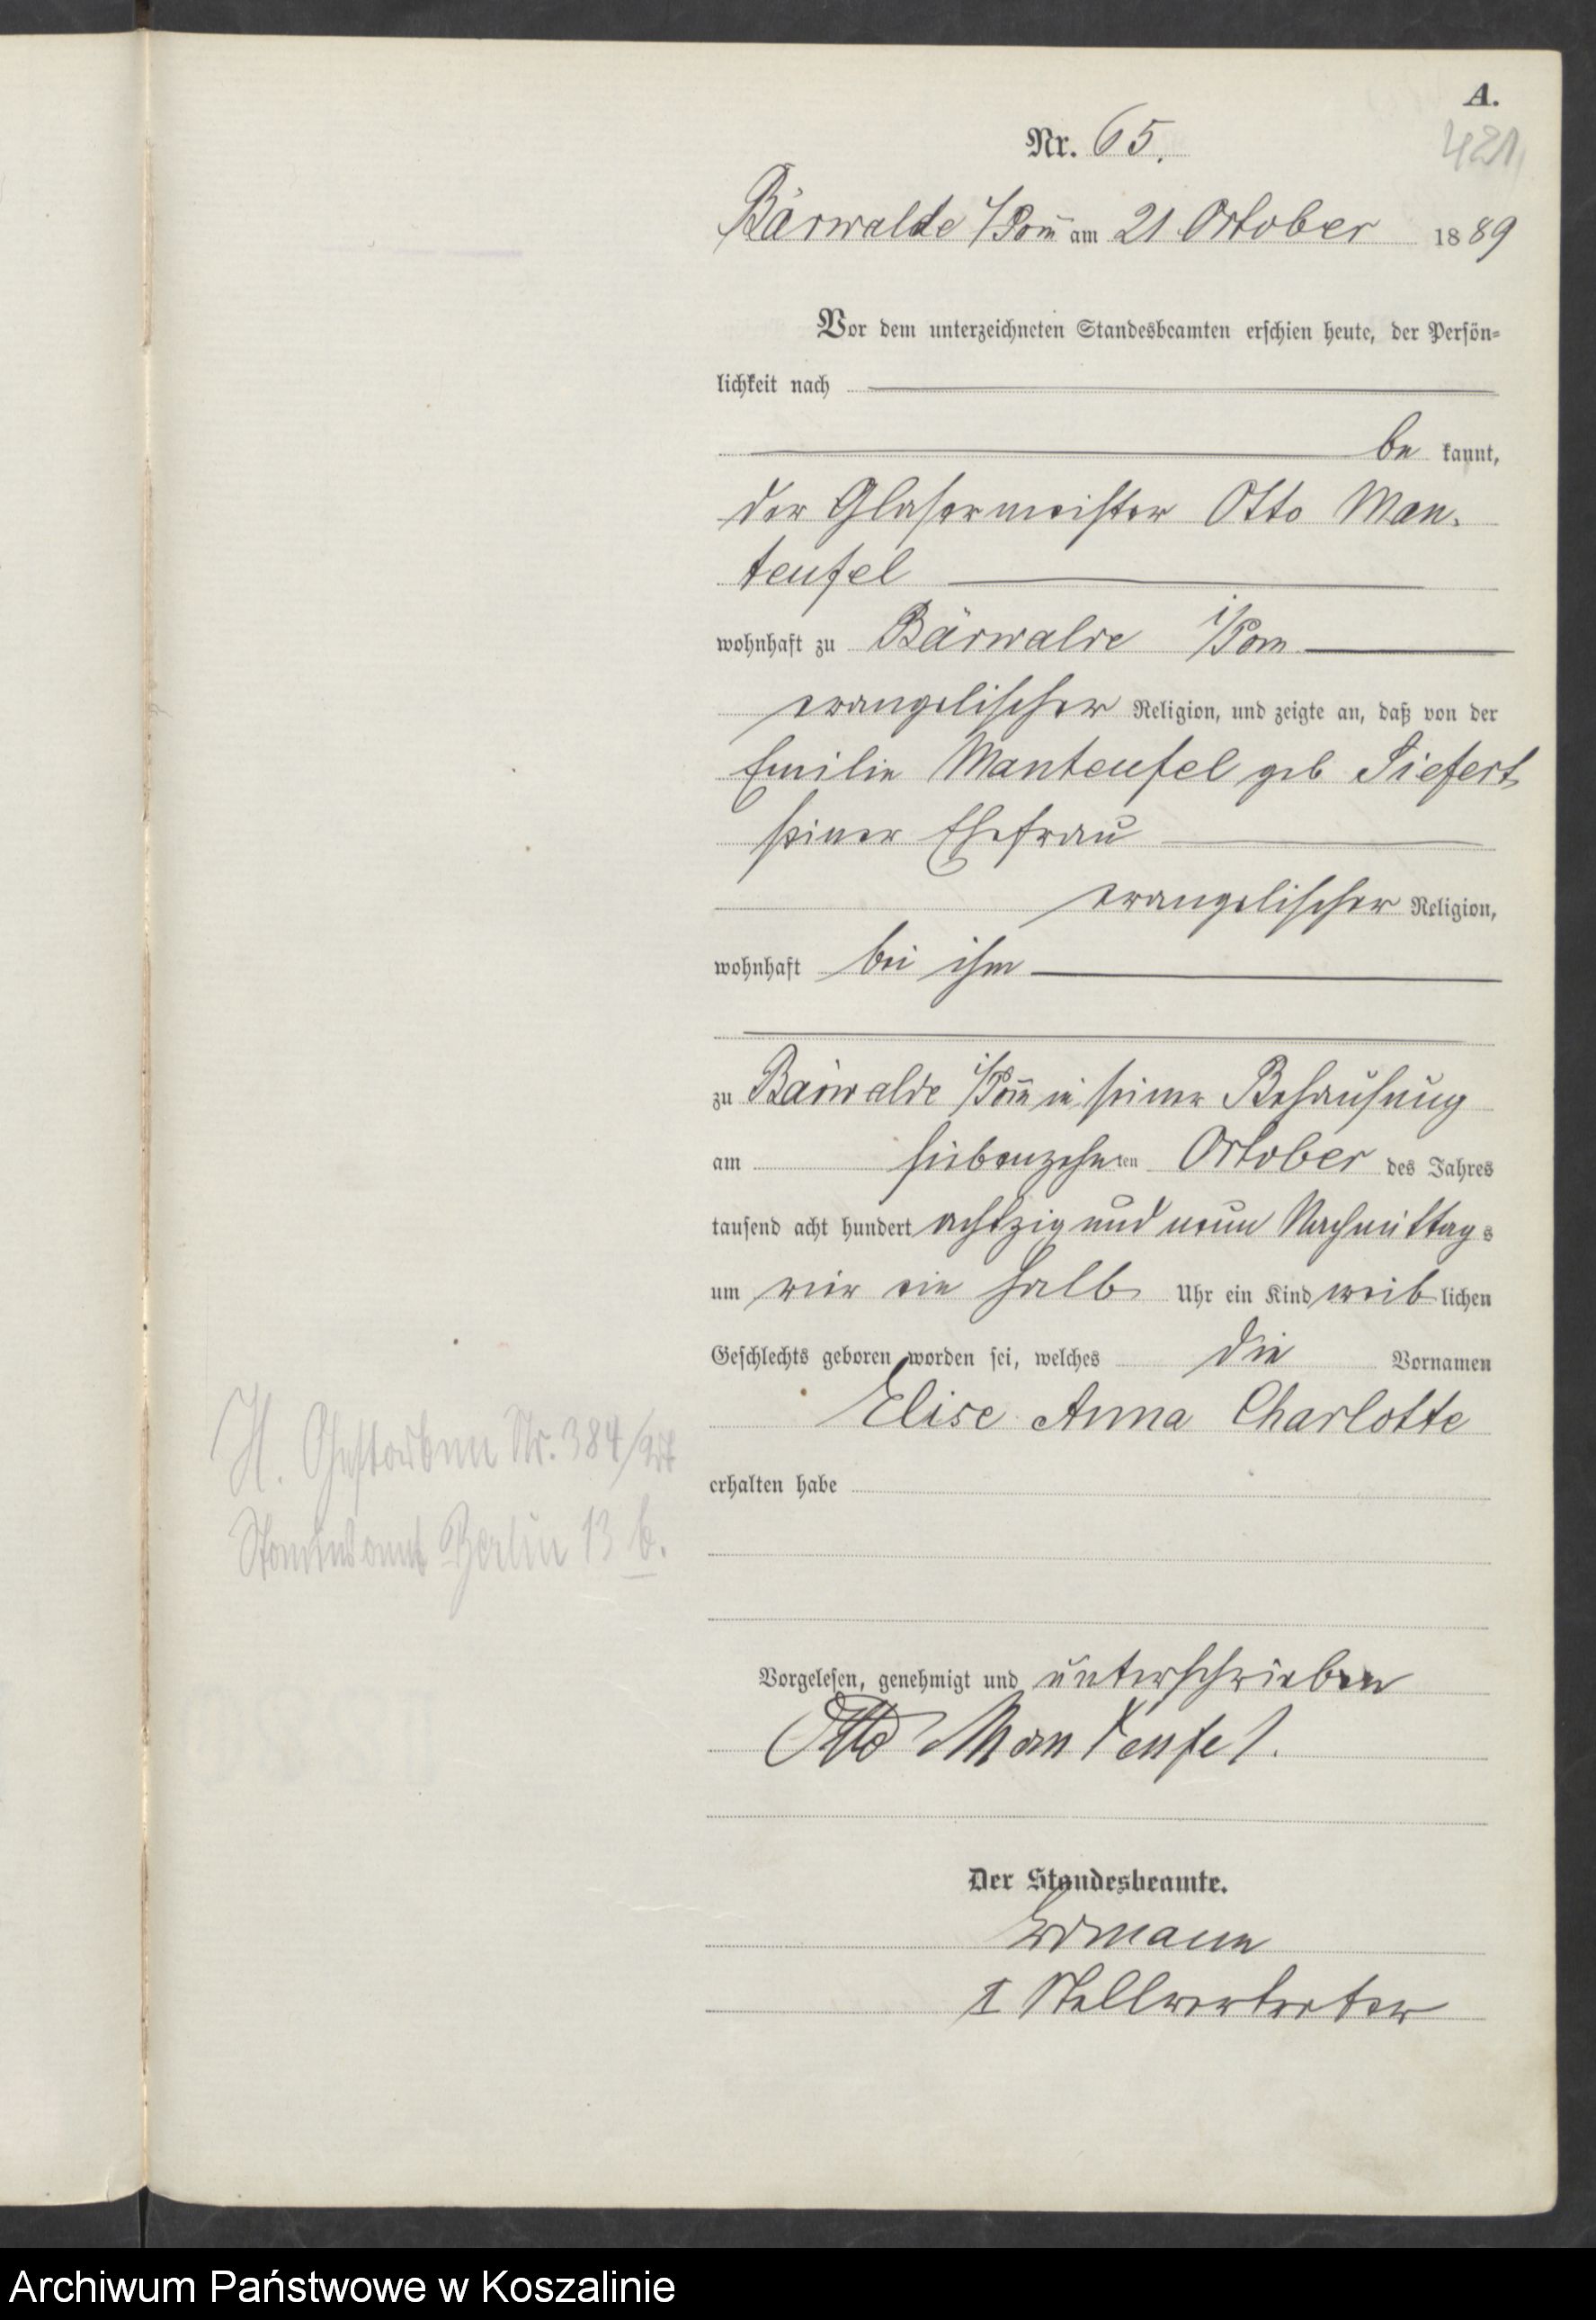 A.
421
Nr. 65.
Bärwalde i/Pom̄ am 21 October 1889
Vor dem unterzeichneten Standesbeamten erschien heute, der Persön=
lichkeit nach
be kannt,
der Glasermeister Otto Man-
teufel
wohnhaft zu Bärwalde i/Pom
evangelischer Religion, und zeigte an, daß von der
Emilie Manteufel geb Siefert
seiner Ehefrau
evangelischer Religion,
wohnhaft bei ihm
zu Bärwalde i/Pom̄ in seiner Behausung
am siebenzehnten October des Jahres
tausend acht hundert achtzig und neun Nachmittags
um vier ein halb Uhr ein Kind weiblichen
Geschlechts geboren worden sei, welches die Vornamen
Elise Anna Charlotte
erhalten habe
H. Gestorben Nr. 384/
Standesamt Berlin 13 b.
Vorgelesen, genehmigt und unterschrieben
Otto Manteufel.
Der Standesbeamte.
Erdmann
I Stellvertreter
Archiwum Państwowe w Koszalinie